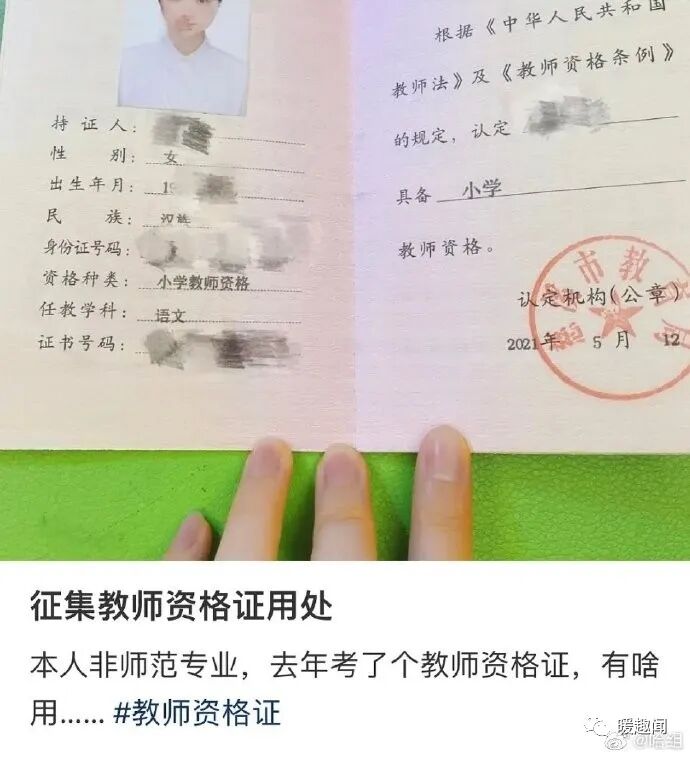 持证人：
性别：女
出生年月：19
民族：汉族
身份证号码：
资格种类：小学教师资格
任教学科：语文
证书号码：
根据《中华人民共和国
教师法》及《教师资格条例》
的规定，认定
具备 小学
教师资格。
市教
认定机构(公章)
2021年 5 月 12
征集教师资格证用处
本人非师范专业，去年考了个教师资格证，有啥
用...... #教师资格证
暖趣闻
@哈组